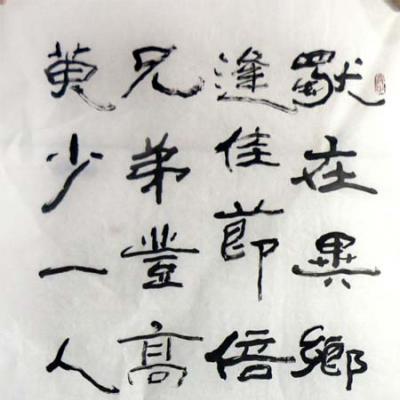 獨在異鄉
逢佳節倍
兄弟登高
萸少一人